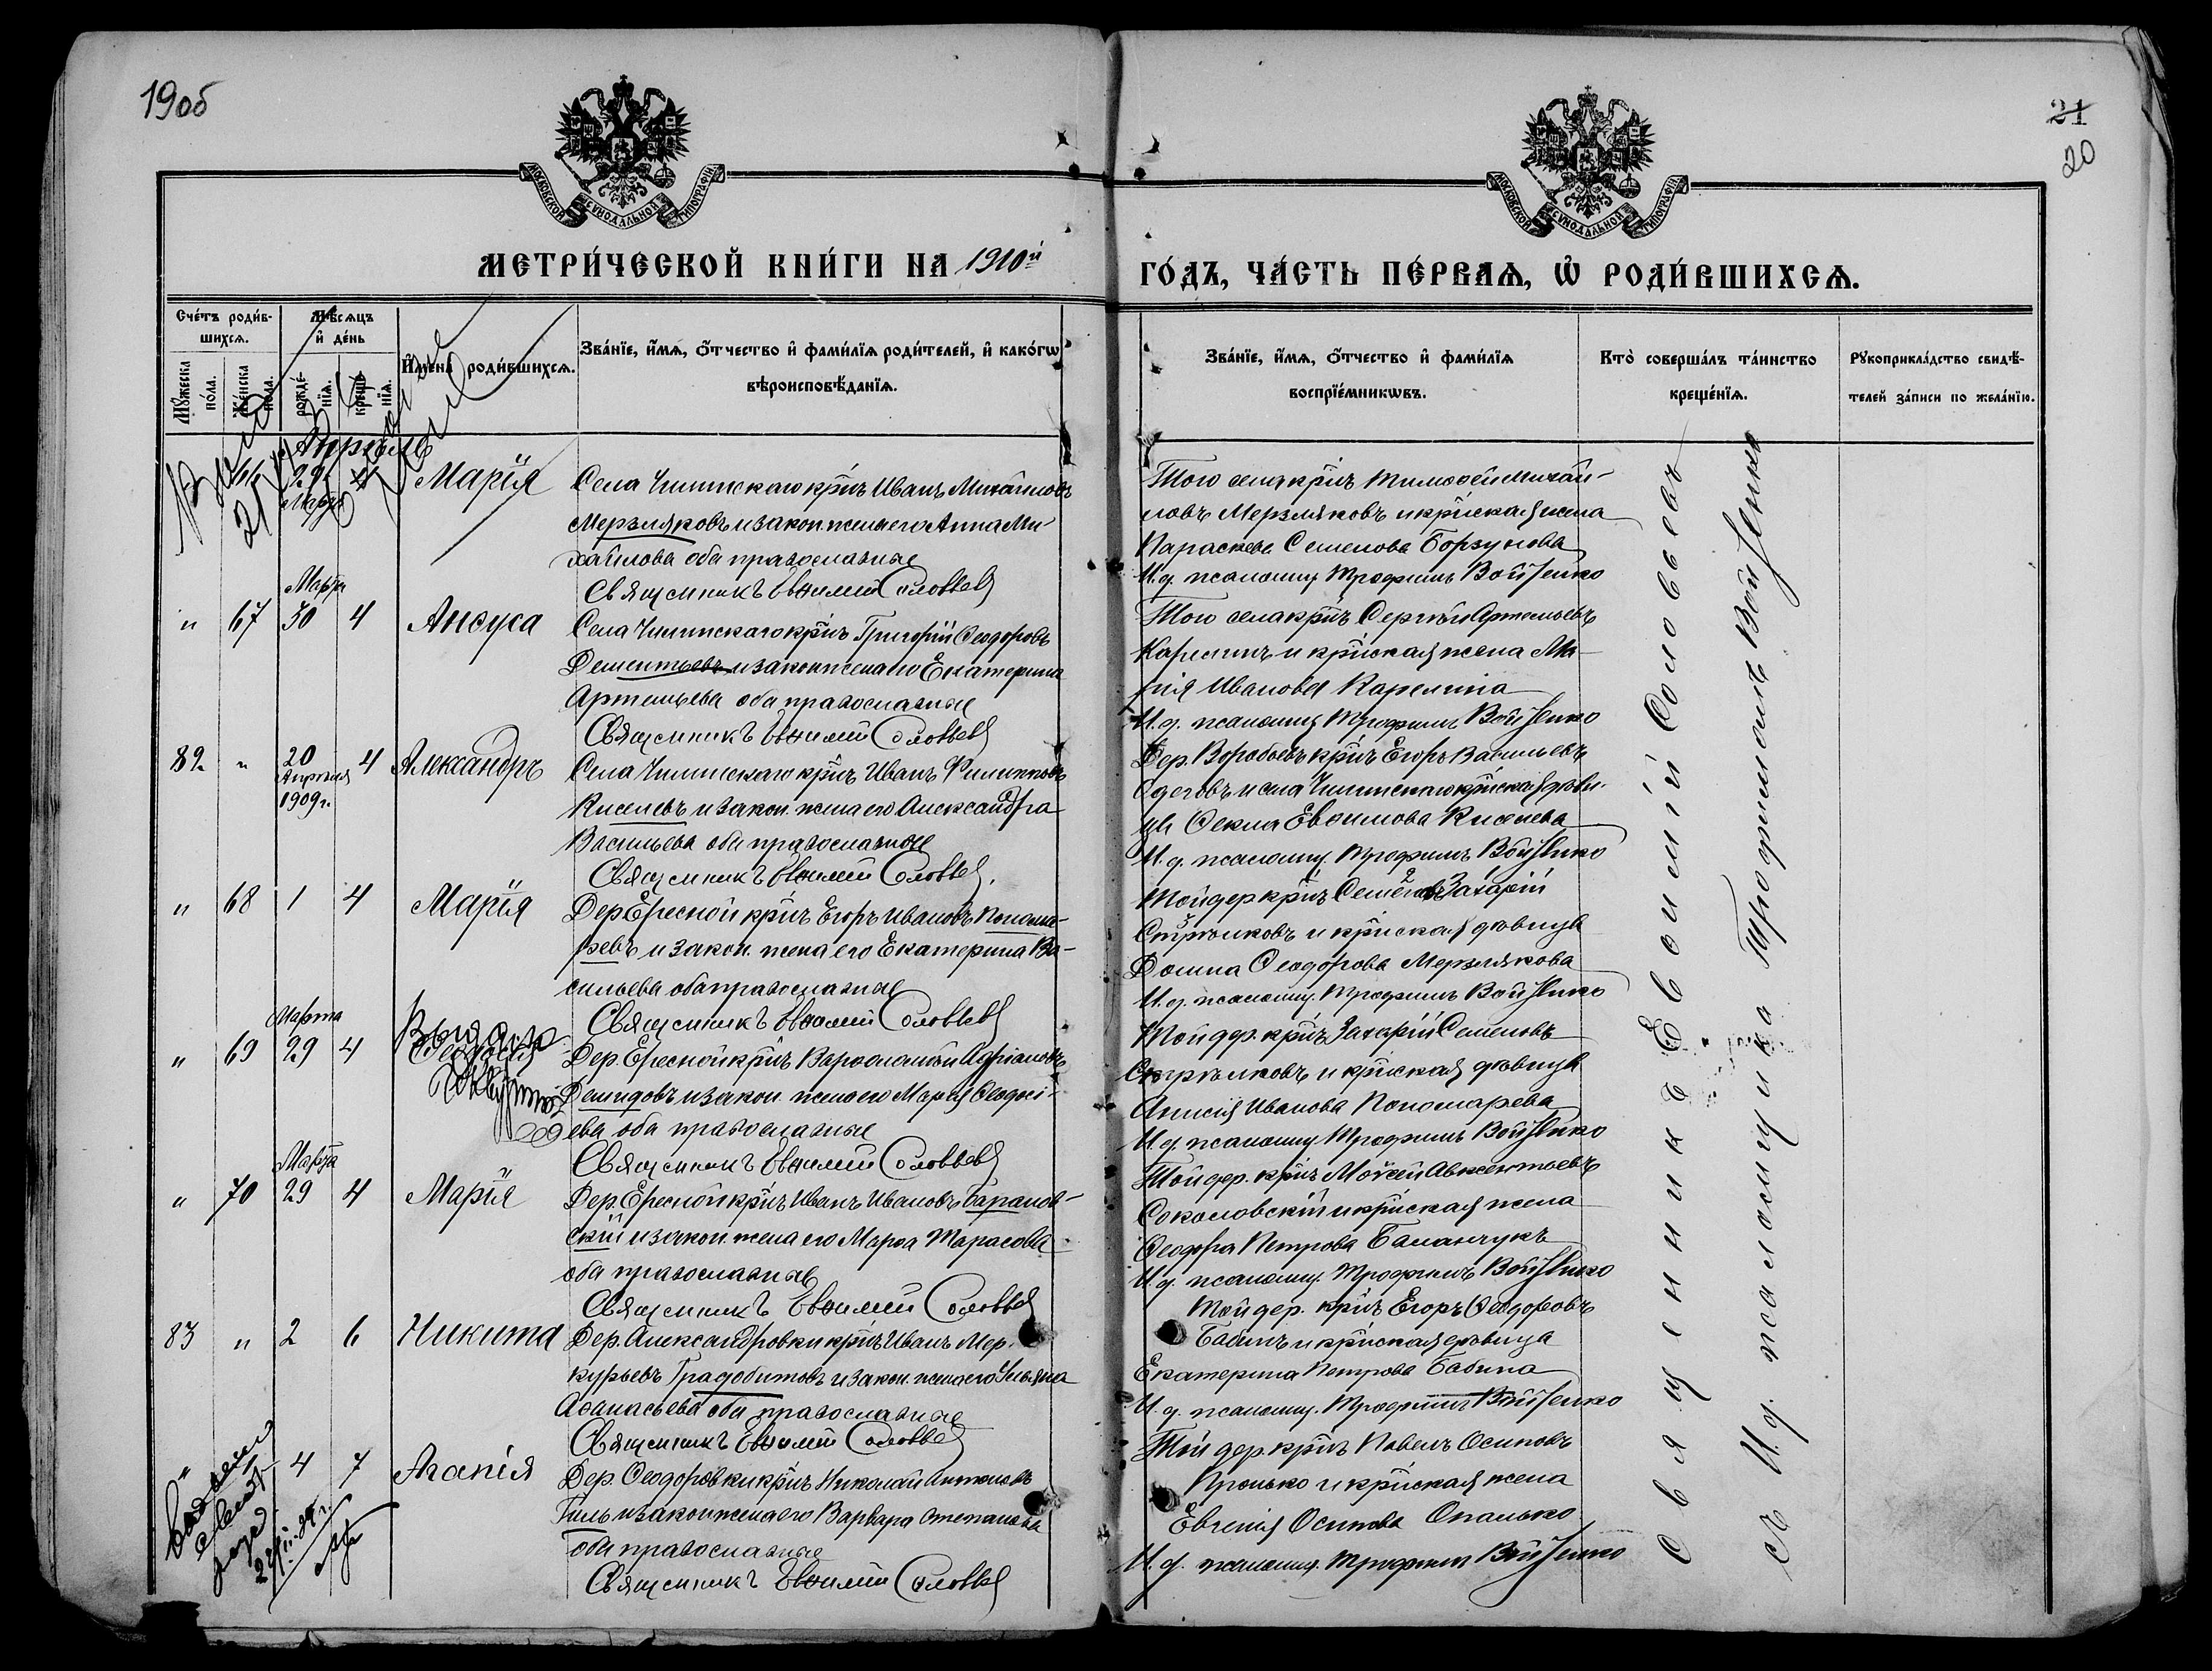 1906
21
20
МОСКОВСКОЙ СѴНОДАЛЬНОЙ ТИПОГРАФІИ
МОСКОВСКОЙ СѴНОДАЛЬНОЙ ТИПОГРАФІИ
МЕТРИ́ЧЕСКОЙ КНИ́ГИ НА 1910й
ГО́ДЪ, ЧА́СТЬ ПЕ́РВАѦ, Ѽ РОДИ́ВШИХСѦ.
Сче́тъ роди́в-
шихсѧ.
Мѣ́сѧцъ
и҆ де́нь
Мꙋ́жеска по́ла.
Же́нска по́ла.
рожде́-
нїѧ.
креще́-
нїѧ.
И҆мена̀ роди́вшихсѧ.
Зва́нїе, и҆́мѧ, ѻ҆́тчество и҆ фами́лїѧ роди́телей, и҆ како́гѡ
вѣроисповѣ́данїѧ.
Зва́нїе, и҆́мѧ, ѻ҆́тчество и҆ фами́лїѧ
воспрїе́мникѡвъ.
Кто̀ соверша́лъ та́инство
креще́нїѧ.
Рꙋкоприкла́дство свидѣ́-
телей за́писи по жела́нїю.
Апрѣль
66 29 Марта 4 Марія
Села Чиштскаго кр̃нъ Иванъ Михайловъ
Мерзляковъ и закон. жена его Анна Ми-
хайлова оба православные
Священникъ Евѳимій Соловьевъ
Того села кр̃нъ Тимоѳей Михай-
ловъ Мерзляковъ и кр̃нская жена
Параскева Семенова Борзунова
И. д. псаломщ. Трофимъ Войтенко
Марта
" 67 30 4 Анѳуса
Села Чиштскаго кр̃нъ Григорій Ѳеодоровъ
Дементьевъ и закон жена его Екатерина
Артемьева оба православные
Священникъ Евѳимій Соловьевъ
Того села кр̃нъ Сергѣй Артемьевъ
Карелинъ и кр̃нская жена Ма-
рія Иванова Карелина
И. д. псаломщ Трофимъ Войтенко
82 " 20 Апрѣля 1909 г. 4 Александръ
Села Чиштскаго кр̃нъ Иванъ Филипповъ
Киселевъ и закон. жена его Александра
Васильева оба православные
Священникъ Евѳимій Соловьевъ.
Дер. Воробьевъ кр̃нъ Егоръ Васильевъ
ца Ѳекла Евѳимова Киселева
И. д. псаломщ. Трофимъ Войтенко
" 68 1 4 Марія
Дер. Ересной кр̃нъ Егоръ Ивановъ Понома-
ревъ и закон. жена его Екатерина Ва-
сильева оба православные
Священникъ Евѳимій Соловьевъ
Той дер кр̃нъ Семеновъ Захарій
Стрѣлковъ и кр̃нская дѣвица
Домна Ѳеодорова Мерзлякова
И. д. псаломщ. Трофимъ Войтенко
Марта
" 69 29 4
Дер. Ересной кр̃нъ Варѳоломей Адріановъ
Демидовъ и закон. жена его Марія Ѳеодосі-
ева оба православные
Священникъ Евѳимій Соловьевъ
Той дер. кр̃нъ Захарій Семеновъ
Стрѣлковъ и кр̃нская дѣвица
Анисія Иванова Пономарева
И. д. псаломщ Трофимъ Войтенко
Марта
" 70 29 4 Марія
Дер. Ересной кр̃нъ Иванъ Ивановъ Баранов-
скій и закон. жена его Марѳа Тарасова
оба православные
Священникъ Евѳимій Соловьевъ
Той дер. кр̃нъ Моисей Авксентьевъ
Соколовскій и кр̃нская жена
Ѳеодора Петрова Баланчукъ
И. д. псаломщ. Трофимъ Войтенко
83 " 2 6 Никита
Дер. Александровки кр̃нъ Иванъ Мер-
курьевъ Градобитовъ и закон. жена его Ульяна
Аѳанасьева оба православные
Священникъ Евѳимій Соловьевъ
Той дер. кр̃нъ Егоръ Ѳеодоровъ
Бабинъ и кр̃нская дѣвица
Екатерина Петрова Бабина
И. д. псаломщ. Трофимъ Войтенко
" 4 7 Агапія
Дер. Ѳеодоровки кр̃нъ Николай Антоновъ
Гиль и закон жена его Варвара Степанова
оба православные
Священникъ Евѳимій Соловьевъ
Той дер. кр̃нъ Павелъ Осиповъ
Пронько и кр̃нская жена
Евгенія Осипова Опанько
И. д. псаломщ. Трофимъ Войтенко
Священникъ Евѳимій Соловьевъ
И. д. псаломщика Трофимъ Войтенко